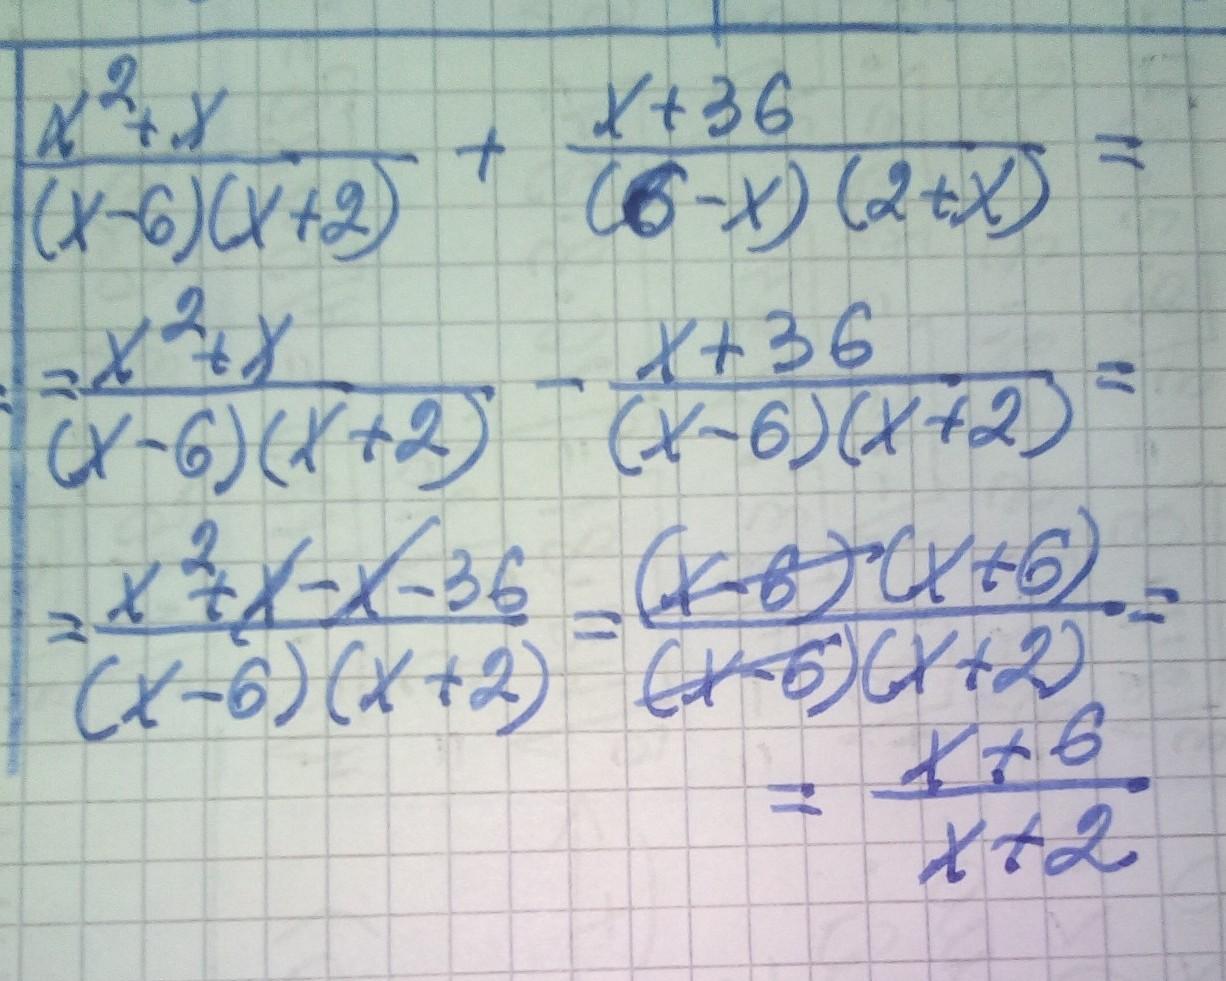 x²+x / (x-6)(x+2) + x+36 / (6-x)(2+x) =
= x²+x / (x-6)(x+2) - x+36 / (x-6)(x+2) =
= x²+x-x-36 / (x-6)(x+2) = (x-6)(x+6) / (x-6)(x+2) =
= x+6 / x+2